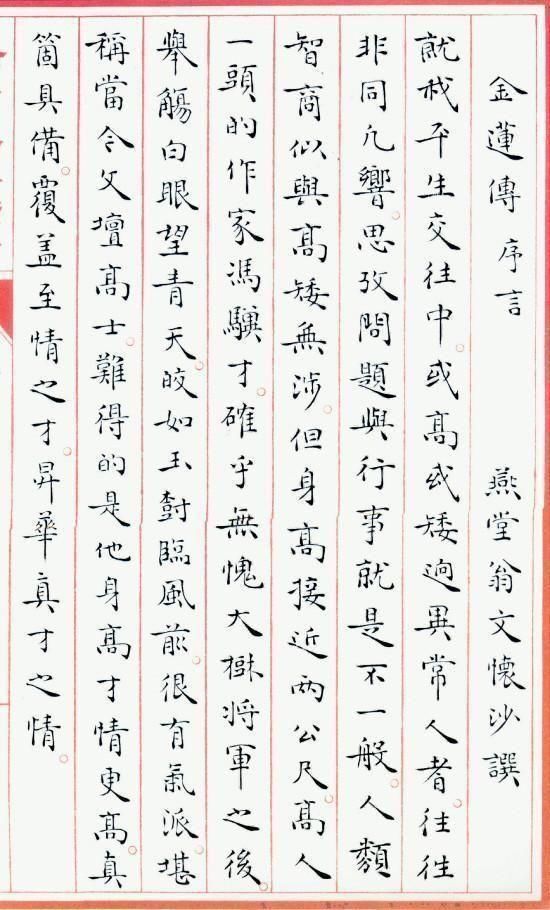 金蓮傳 序言 燕堂翁文懷沙譔
就我平生交往中或高或矮迥異常人者。往往
非同凡響。思考問題與行事就是不一般。人類
智商似與高矮無涉。但身高接近两公尺。高人
一頭的作家馮驥才。確乎無愧大樹將軍之後。
舉觴白眼望青天。皎如玉樹臨風前。很有氣派。堪
稱當今文壇高士。難得的是他身高才情更高。真
箇具備。覆盖至情之才。昇華真才之情。